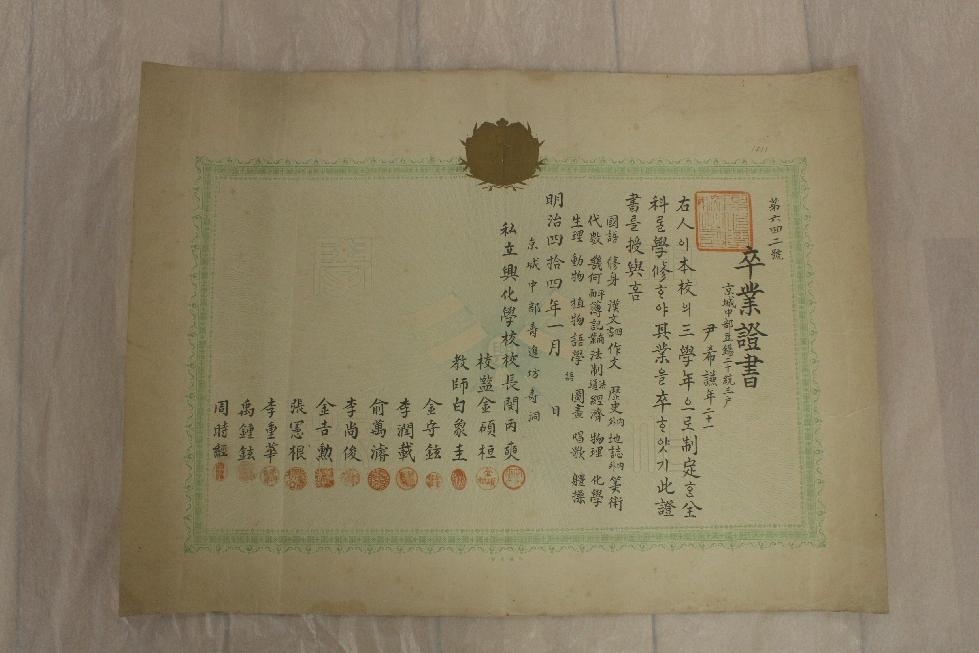 第六四二號
卒業證書
京城中部
尹希謙 年二十一
右人이本校의三學年으로制定ᄒᆞᆫ全
科ᄅᆞᆯ學修ᄒᆞ야其業을卒ᄒᆞ얏기此證
書ᄅᆞᆯ授與홈
國語 修身 漢文 作文 歷史 地誌 筭術
代數 幾何 簿記 法制 經濟 物理 化學
生理 動物 植物 語學 圖畫 唱歌 體操
明治四拾四年一月 日
京城中部壽進坊壽洞
私立興化學校校長閔丙奭
校監金碩桓
敎師白象圭
金守鉉
李潤載
俞萬濬
李尙俊
金吉勳
張憲根
李重華
禹鍾鉉
周時經